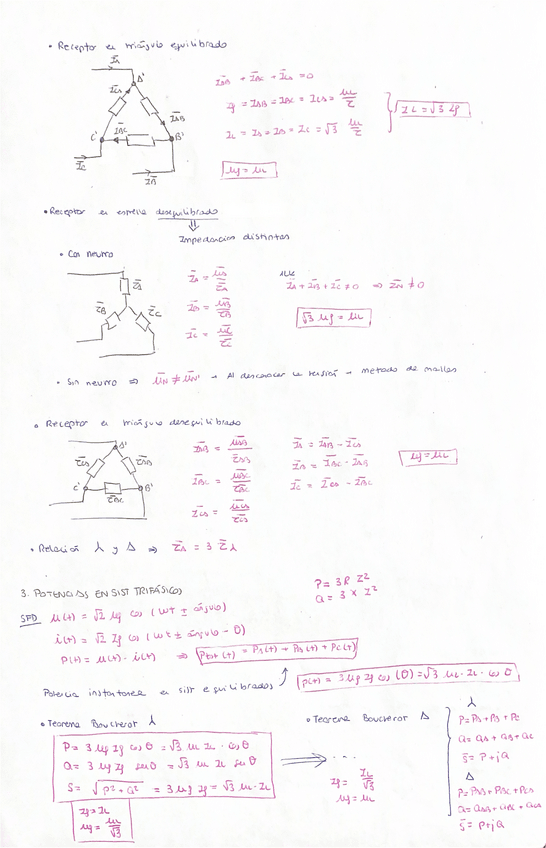 • Receptor en triángulo equilibrado
ĪA
A'
ĪCA
ĪAB
C'
ĪBC
B'
ĪC
ĪB
ĪAB + ĪBC + ĪCA = 0
If = IAB = IBC = ICA = UL/Z
IL = IA = IB = IC = √3 UL/Z
IL = √3 If
Uf = UL
• Receptor en estrella desequilibrado
⇓
Impedancias distintas
• Con neutro
Z̄A
Z̄B
Z̄C
ĪA = ŪA/Z̄A
ĪB = ŪB/Z̄B
ĪC = ŪC/Z̄C
ĪA + ĪB + ĪC ≠ 0 ⇒ ĪN ≠ 0
√3 Uf = UL
• Sin neutro ⇒ ŪN ≠ ŪN' → Al desconocer la tensión → metodo de mallas
• Receptor en triángulo desequilibrado
A'
Z̄CA
Z̄AB
C'
Z̄BC
B'
ĪAB = ŪAB/Z̄AB
ĪBC = ŪBC/Z̄BC
ĪCA = ŪCA/Z̄CA
ĪA = ĪAB - ĪCA
ĪB = ĪBC - ĪAB
ĪC = ĪCA - ĪBC
Uf = UL
• Relación ⅄ y Δ ⇒ Z̄Δ = 3 Z̄⅄
3. POTENCIAS EN SIST TRIFÁSICOS
P = 3 R I²
Q = 3 X I²
SFD u(t) = √2 Uf cos (wt ± ángulo)
i(t) = √2 If cos (wt ± ángulo - θ)
P(t) = u(t) · i(t) ⇒ Ptot(t) = PA(t) + PB(t) + PC(t)
Potencia instantanea en sist equilibrados
p(t) = 3 Uf If cos (θ) = √3 UL · IL · cos θ
• Teorema Boucherot ⅄
P = 3 Uf If cos θ = √3 UL IL · cos θ
Q = 3 Uf If sen θ = √3 UL IL sen θ
S = √P² + Q² = 3 Uf If = √3 UL · IL
If = IL
Uf = UL/√3
• Teorema Boucherot Δ
⇒ ...
If = IL/√3
Uf = UL
⅄
P = PA + PB + PC
Q = QA + QB + QC
S̄ = P + jQ
Δ
P = PAB + PBC + PCA
Q = QAB + QBC + QCA
S̄ = P + jQ